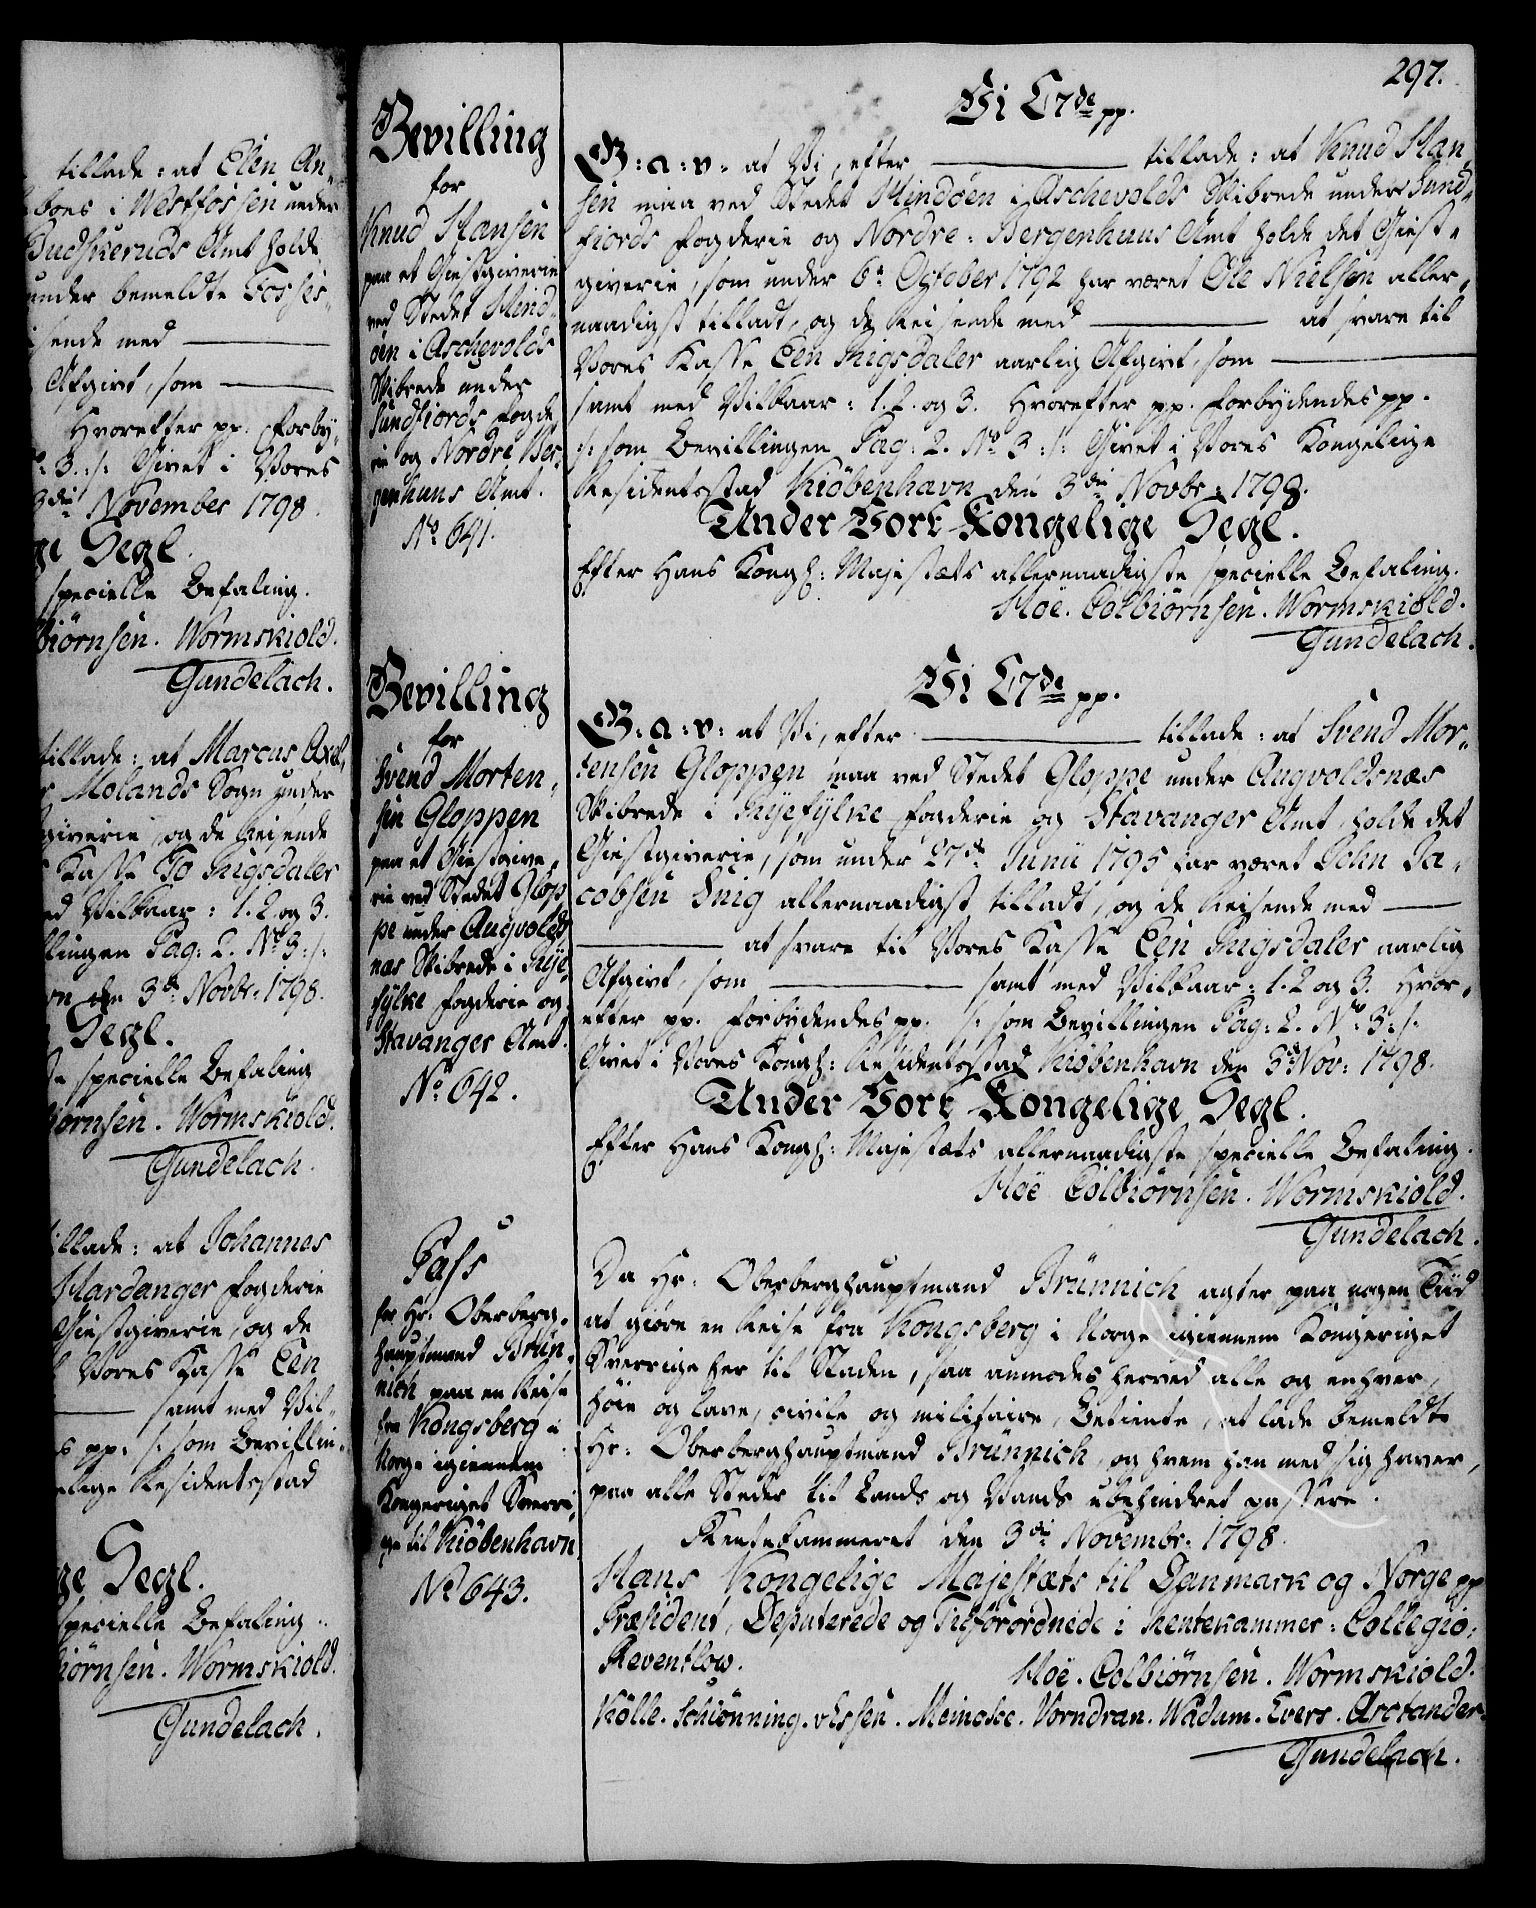 tillade: at Elen An-
boes i Westfossen under
Budskeruds Amt holde
under bemeldte Fosses-
isende med
Afgivt, som
Hvorefter pp. Forby-
3. :/: Givet i Vores
3die November 1798.
ge Segl.
specielle Befaling.
biörnsen. Wormskiold.
Gundelach.
tillade: at Marcus Axel-
Molands Sogn under
giverie, og de Reisende
Kasse To Rigsdaler
ed Vilkaar: 1. 2 og 3.
llingen Pag: 2. No 3 :/:
vn den 3die Novbr: 1798.
Segl.
specielle Befaling
biörnsen. Wormskiold.
Gundelach.
tillade: at Johannes
Hardanger Fogderie
Giestgiverie, og de
Vores Kasse Een
samt med Vil-
pp. /: som Bevillin-
elige Residentsstad
ge Segl.
specielle Befaling.
iörnsen. Wormskiold.
Gundelach.
297.
Bevilling
for
Knud Hansen
paa et Giestgiverie
ved Stedet Hind-
öen i Aschevolds
Skibrede under
Sundfiords Fogde-
rie og Nordre Ber-
genhuus Amt.
No 641.
Vi C7de pp.
G: a: v: at Vi, efter tillade: at Knud Han-
sen maa ved Stedet Hindöen i Aschevolds Skibrede under Sund-
fiords Fogderie og Nordre-Bergenhuus Amt holde det Giest-
giverie, som under 6te October 1792 har været Ole Nielsen aller-
naadigst tilladt, og de Reisende med at svare til
Vores Kasse Een Rigsdaler aarlig Afgivt, som
samt med Vilkaar: 1. 2. og 3. Hvorefter pp. Forbydendes pp.
/: som Bevillingen Pag: 2. No 3 :/: Givet i Vores Kongelige
Residentsstad Kiöbenhavn den 3die Novbr: 1798.
Under Vort Kongelige Segl.
Efter Hans Kongl: Majestæts allernaadigste specielle Befaling.
Hoë. Colbiörnsen. Wormskiold.
Gundelach.
Bevilling
for
Svend Morten-
sen Gloppen
paa et Giestgive-
rie ved Stedet Glop-
pe under Augvolds-
næs Skibrede i Rye-
fylke Fogderie og
Stavanger Amt.
No 642.
Vi C7de pp.
G: a: v: at Vi, efter tillade: at Svend Mor-
tensen Gloppen maa ved Stedet Gloppe under Augvoldsnæs
Skibrede i Ryefylke Fogderie og Stavanger Amt, holde det
Giestgiverie, som under 27de Junii 1795 har været John Ja-
cobsen Snig allernaadigst tilladt, og de Reisende med
at svare til Vores Kasse Een Rigsdaler aarlig
Afgivt, som samt med Vilkaar: 1. 2 og 3. Hvor-
efter pp. Forbydendes pp. /: som Bevillingen Pag: 2. No 3 :/:
Givet i Vores Kongl: Residentsstad Kiöbenhavn den 3die Nov: 1798.
Under Vort Kongelige Segl.
Efter Hans Kongl: Majestæts allernaadigste specielle Befaling.
Hoë Colbiörnsen. Wormskiold.
Gundelach.
Pass
for Hr: Oberberg-
hauptmand Brün-
nich paa en Reise
fra Kongsberg i
Norge igiennem
Kongeriget Sverri-
ge til Kiöbenhavn
No 643.
Da Hr: Oberberghauptmand Brünnich agter paa nogen Tiid
at giöre en Reise fra Kongsberg i Norge igiennem Kongeriget
Sverrige her til Staden, saa anmodes herved alle og enhver,
höie og lave, civile og militaire, Betiente, at lade bemeldte
Hr: Oberberghauptmand Brünnich, og hvem han med sig haver,
paa alle Steder til Lands og Vands ubehindret passere.
Rentekammeret den 3die Novembr: 1798.
Hans Kongelige Majestæts til Danmark og Norge pp
Præsident, Deputerede og Tilforordnede i Rentekammer-Collegio.
Reventlow. Hoë. Colbiörnsen. Wormskiold.
Kölle. Schiönning. v Essen. Meincke. Vorndran. Wadum. Evers. Arctander.
Gundelach.